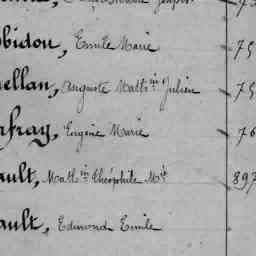 bidou, Emile Marie 75
ellan, Auguste Math.in Julien 75
fray, Eugène Marie 76
ault, Math.in Théophile M.ie 897
ault, Edmond Emile